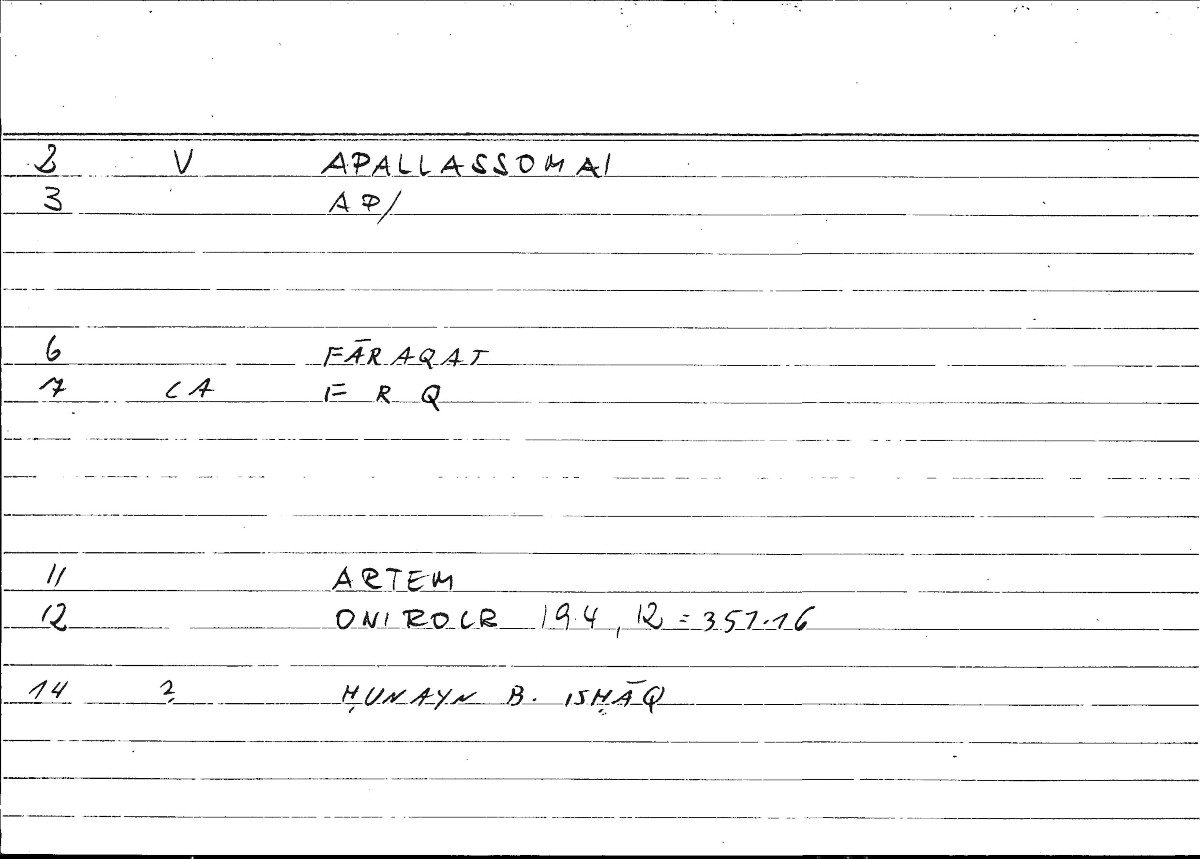 2 V APALLASSOMAI
3 AP/
6 FĀRAQAT
7 CA F R Q
11 ARTEM
12 ONIROCR 194, 12 = 351.16
14 ? ḤUNAYN B. ISḤĀQ